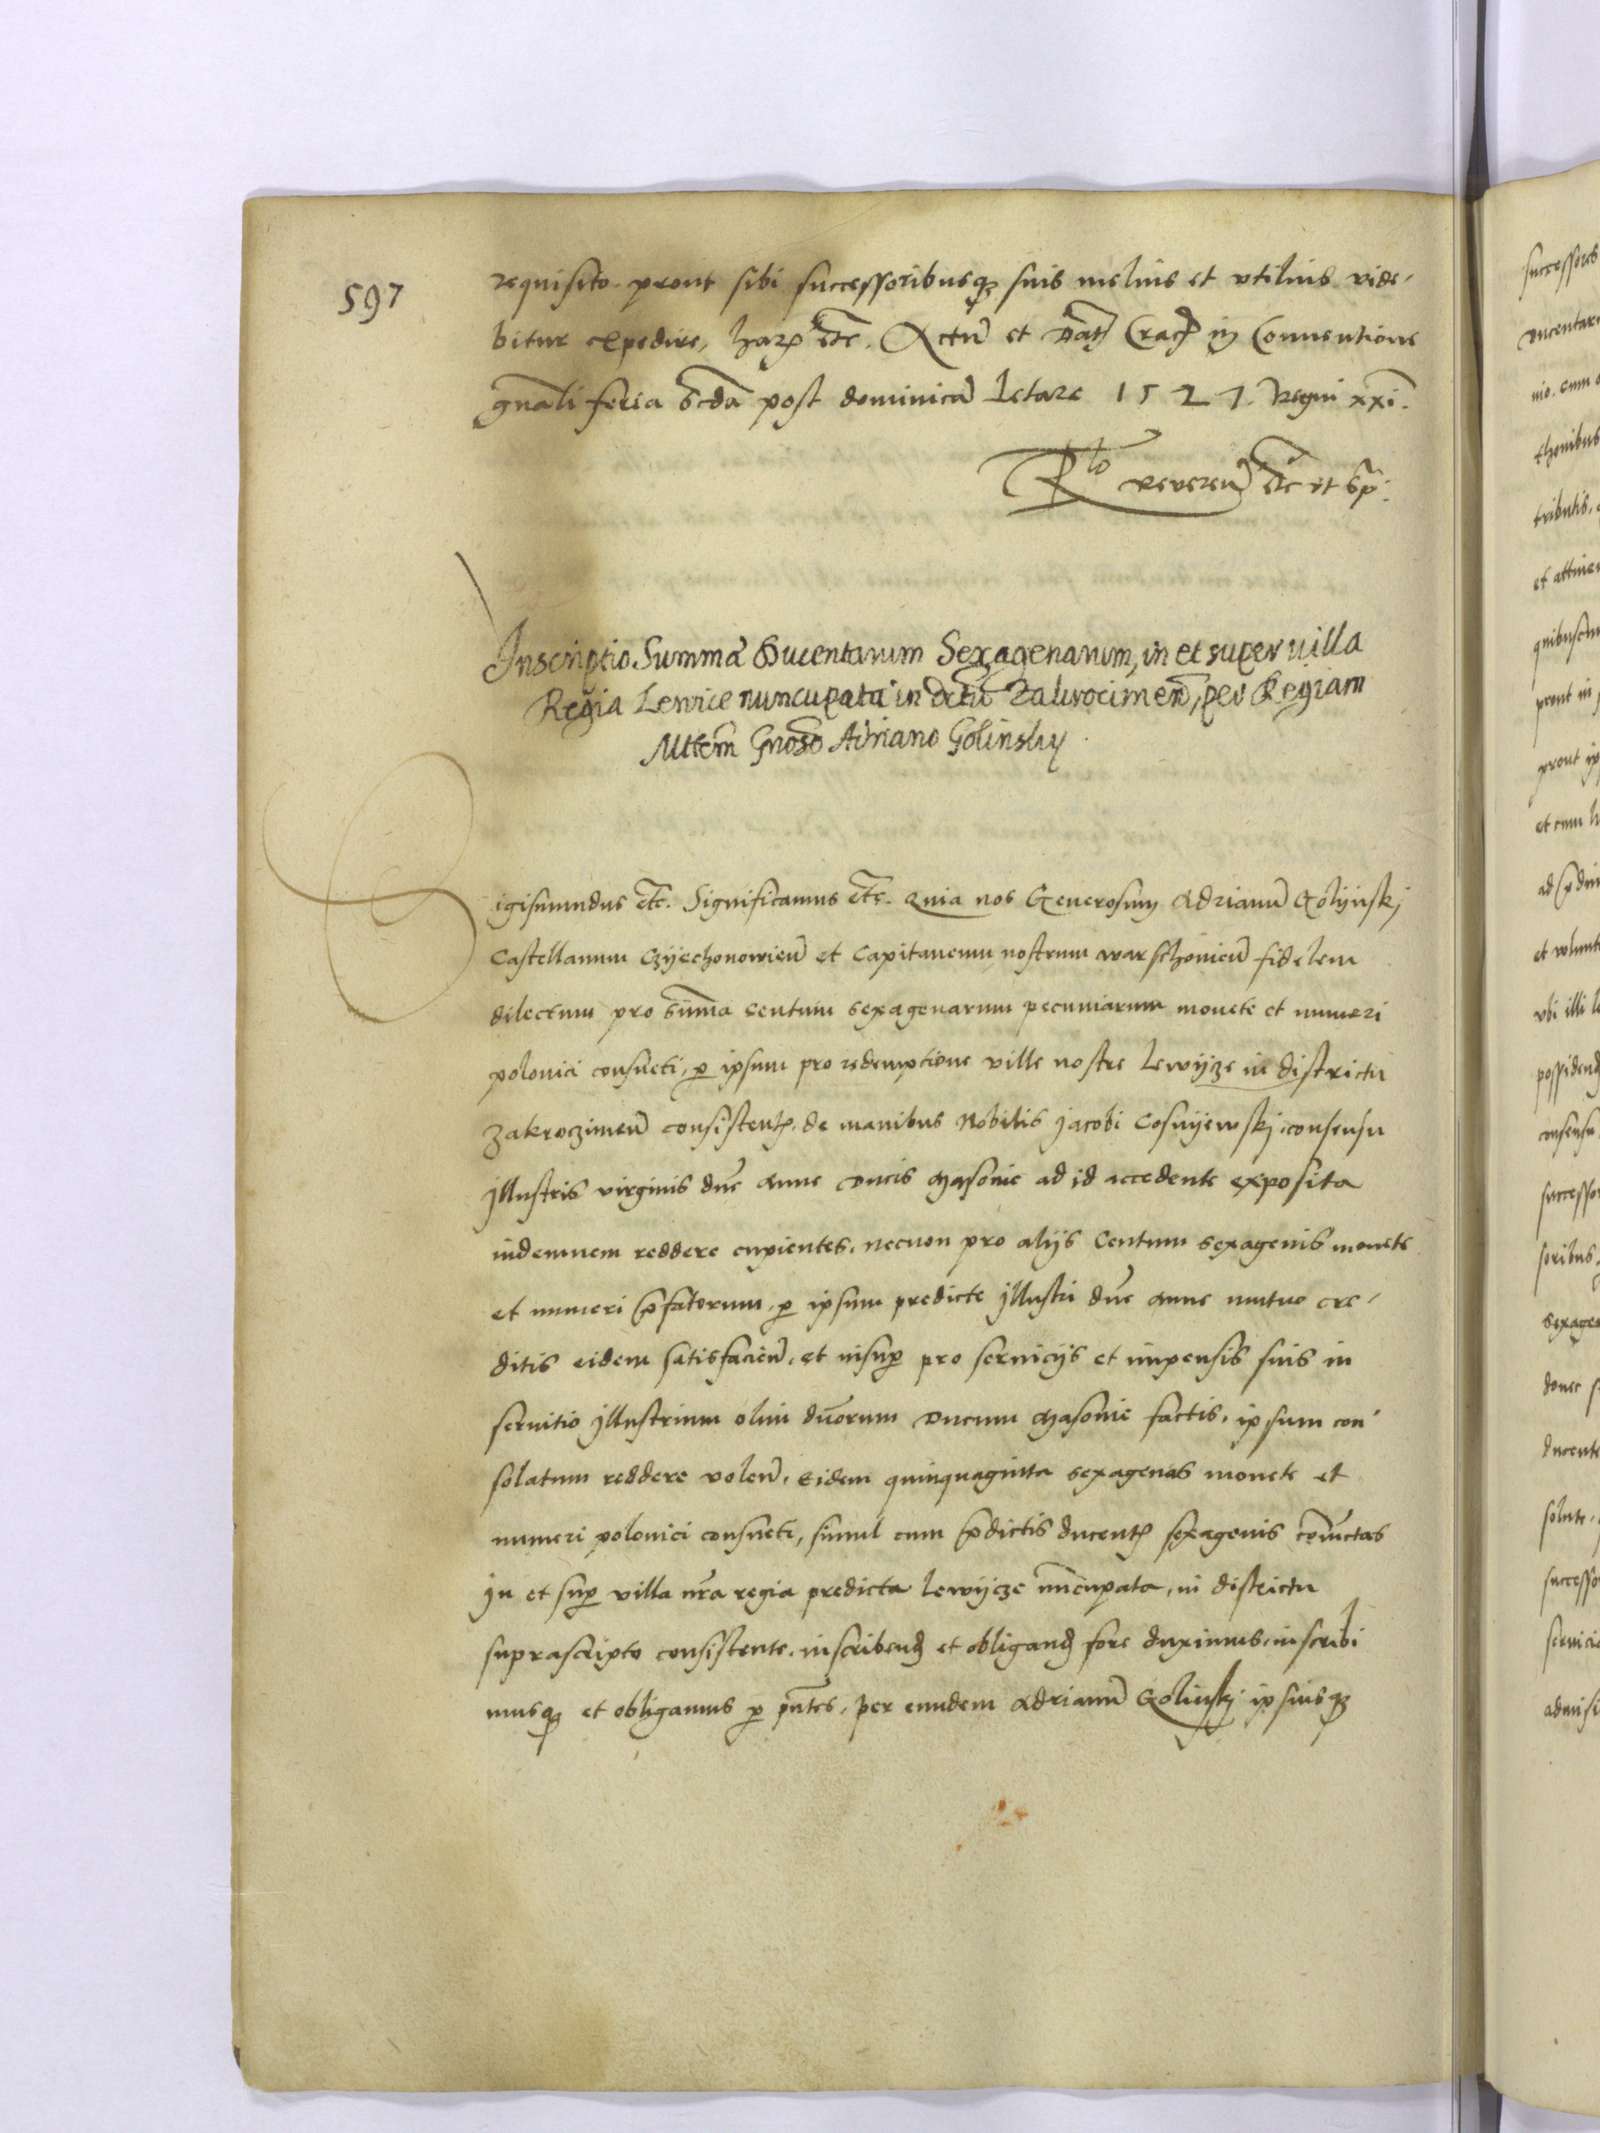 597
requisito prout sibi successoribusq₃ suis melius et vtilius vide-
bitur expedire, har₃ etc. Actu͂ et Dat₃ Crac₃ in Conuentione
gn͂ali feria 2c͂da post dominica͂ Letare 1527. Regni xxi.
R͂lo reueren͂ etc vt sp͂.
Inscriptio Summa͂ Ducentarum Sexagenarum, in et super villa
Regia Lewice nuncupata in Dct͂u Zakrocimen͂, per Regiam
Mtem͂ Gnoso͂ Adriano Golinsky.
Sigismundus etc. Significamus etc. Quia nos Generosum Adrianu͂ Golijnskj
Castellanum Czyechonowien͂ et Capitaneum nostrum warschouien͂ fidelem
dilectum pro sum͂a centum sexagenarum pecuniarum monete et numeri
polonici consueti, p ipsum pro redemptione ville nostre Lewijcze in districtu
Zakroczimen͂ consistent₃ de manibus Nobilis Jacobi Cosnyewskj consensu
Jllustris virginis dn͂e Anne Ducis Masouie ad id accedente exposita
indemnem reddere cupientes, necnon pro alijs Centum sexagenis monete
et numeri p͂fatorum, p ipsum predicte Jllustri dn͂e Anne mutuo cre-
ditis eidem satisfacien͂, et insup pro seruicijs et impensis suis in
seruitio Jllustrium olim dn͂orum Ducum Masouie factis, ipsum con-
solatum reddere volen͂, Eidem quinquaginta sexagenas monete et
numeri polonici consueti, simul cum p͂dictis ducent₃ sexagenis co͂iu͂ctas
In et sup villa nr͂a regia predicta Lewijcze nu͂cupata, in districtu
suprascripto consistente, inscribend₃ et obligand₃ fore duximus, inscribi
musq₃ et obligamus p pn͂tes, per eundem Adrianu͂ Golinskj ipsiusq₃